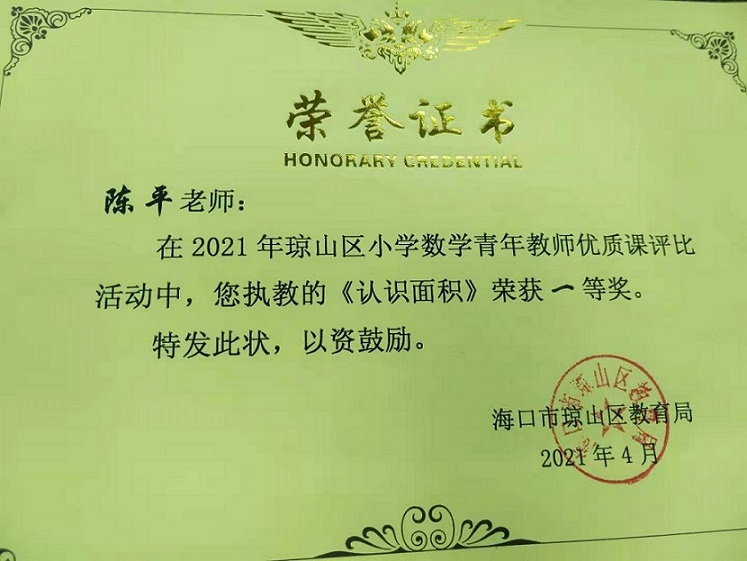 荣誉证书
HONORARY CREDENTIAL
陈平老师：
在2021年琼山区小学数学青年教师优质课评比
活动中，您执教的《认识面积》荣获一等奖。
特发此状，以资鼓励。
海口市琼山区教育局
2021年4月
海口市琼山区教育局